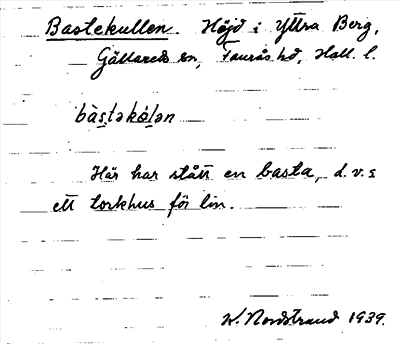 Bastekullen. Höjd i Yttra Berg,
Gällareds sn, Faurås hd, Hall. l.
bàstəkòlən
Här har stått en basta, d.v.s
ett torkhus för lin.
W. Nordstrand 1939.